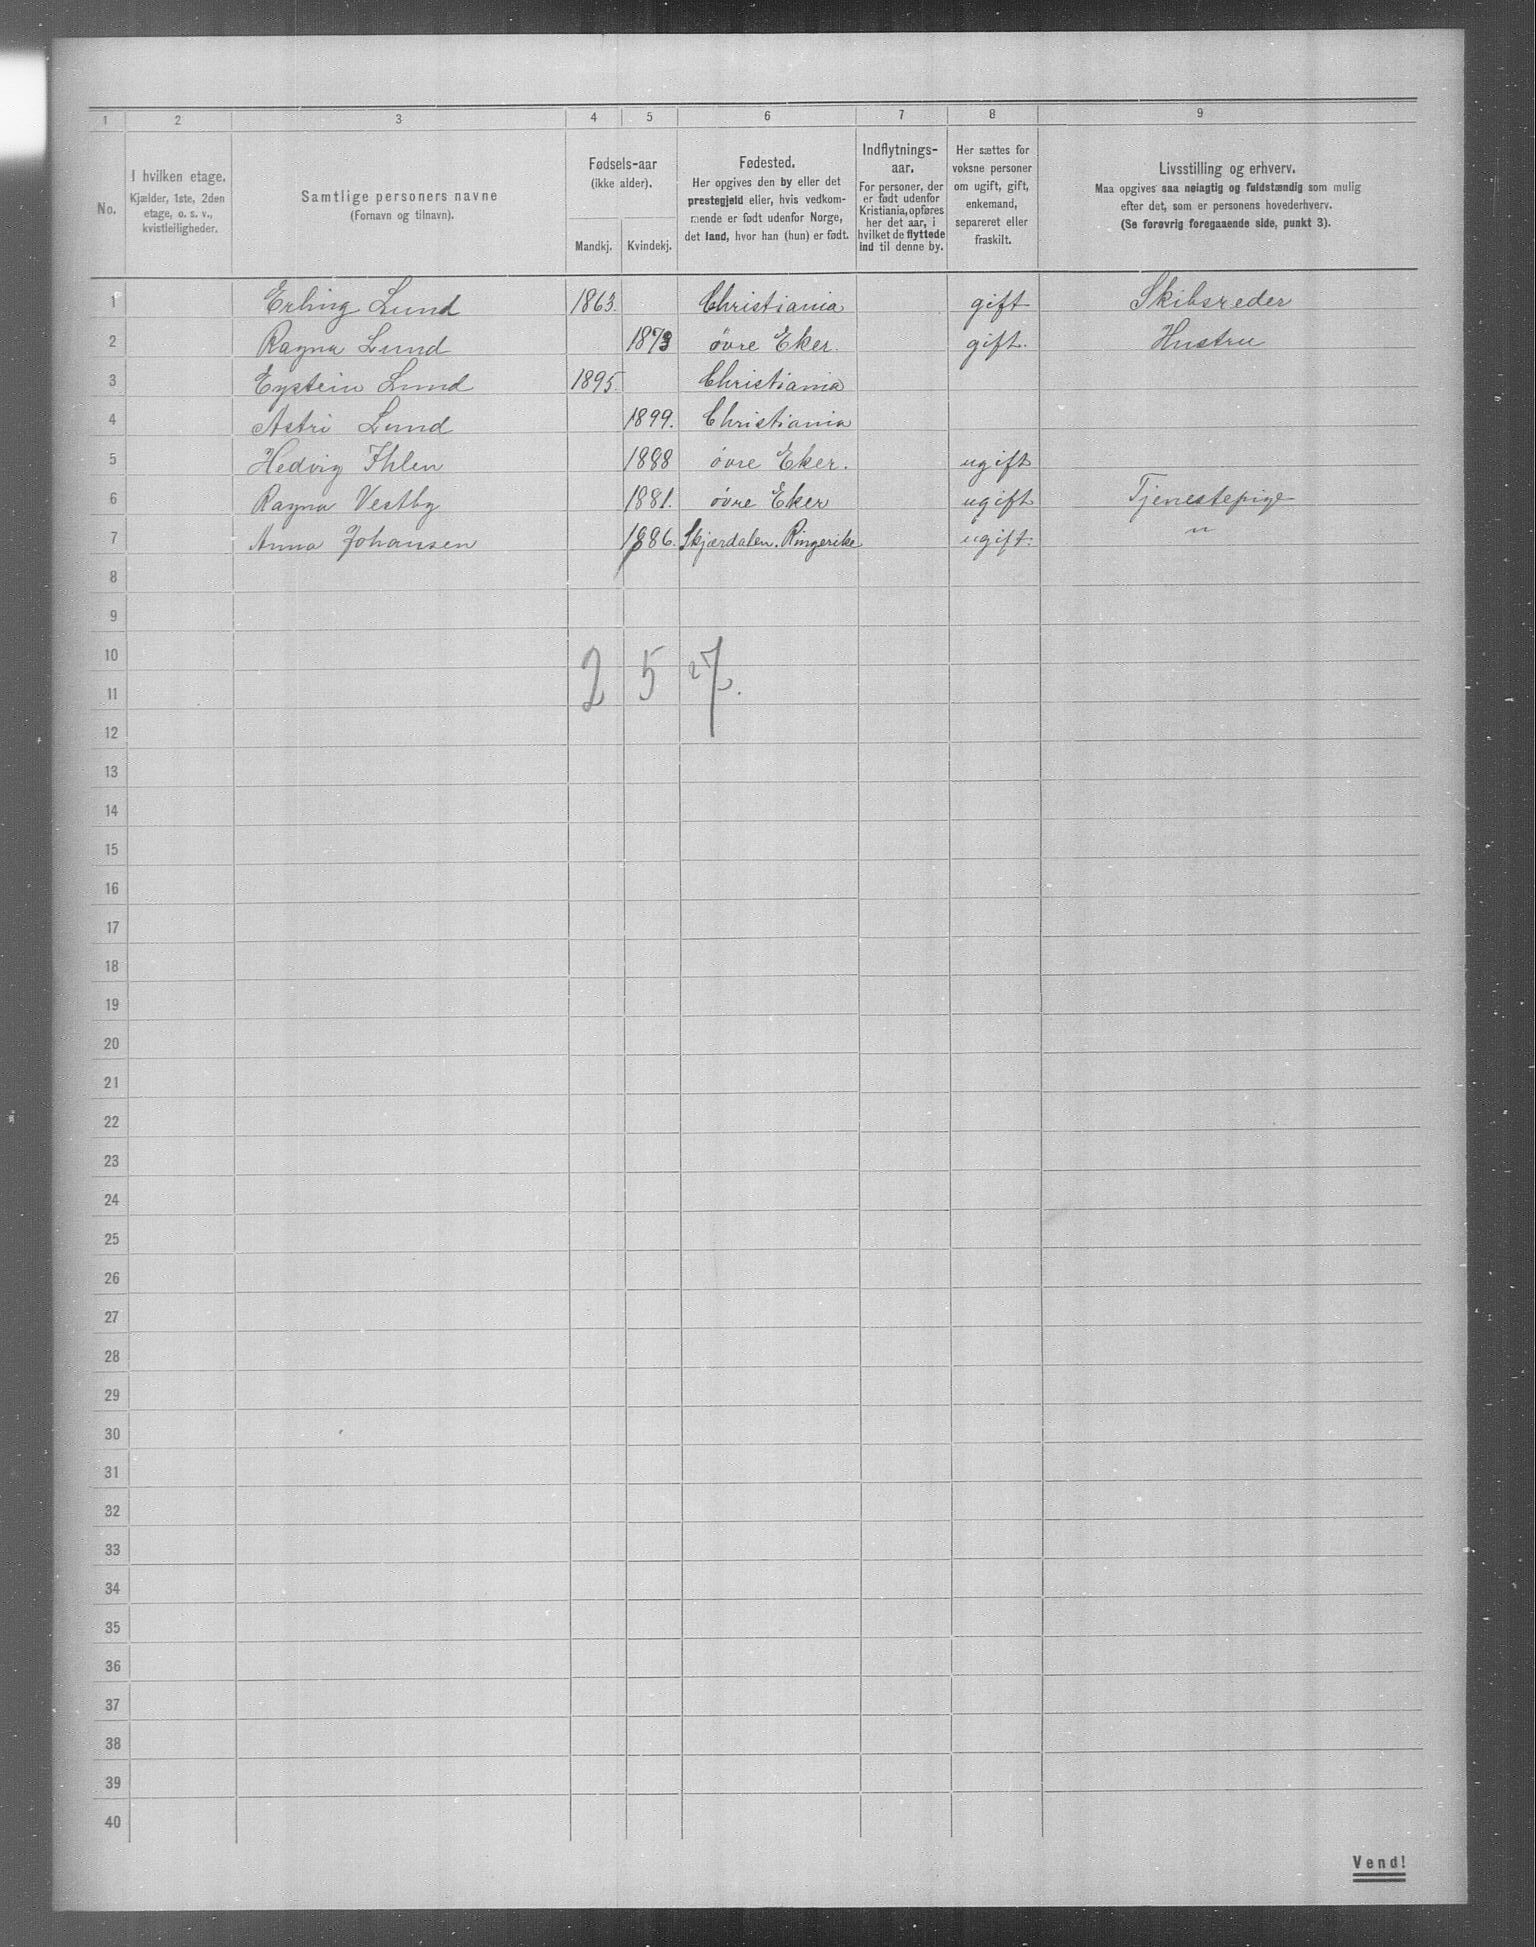 1 2 3 4 5 6 7 8 9
No. I hvilken etage. Kjælder, 1ste, 2den etage, o. s. v., kvistleiligheder. Samtlige personers navne (Fornavn og tilnavn). Fødsels-aar (ikke alder). Mandkj. Kvindekj. Fødested. Her opgives den by eller det prestegjeld eller, hvis vedkommende er født udenfor Norge, det land, hvor han (hun) er født. Indflytnings-aar. For personer, der er født udenfor Kristiania, opføres her det aar, i hvilket de flyttede ind til denne by. Her sættes for voksne personer om ugift, gift, enkemand, separeret eller fraskilt. Livsstilling og erhverv. Maa opgives saa nøiagtig og fuldstændig som mulig efter det, som er personens hovederhverv. (Se forøvrig foregaaende side, punkt 3).
1 Erling Lund 1863. Christiania gift Skibsreder
2 Ragna Lund 1873 øvre Eker. gift. Hustru
3 Eystein Lund 1895. Christiania
4 Astri Lund 1899. Christiania
5 Hedvig Ihlen 1888 øvre Eker. ugift
6 Ragna Vestby 1881. øvre Eker ugift Tjenestepige
7 Anna Johansen 1886. Skjærdalen. Ringerike ugift. "
8
9
10
2 5 7.
11
12
13
14
15
16
17
18
19
20
21
22
23
24
25
26
27
28
29
30
31
32
33
34
35
36
37
38
39
40
Vend!